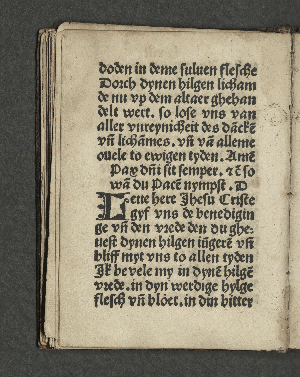 doden in deme suluen flesche
Dorch dynen hilgen licham
de nu vp dem altaer ghehan
delt wert. so lose vns van
aller vnreynicheit des dãckẽ
vñ lichãmes. vñ vã alleme
ouele to ewigen tyden. Amẽ
Pax dñi sit semper. ⁊ẽ so
wã du Pacẽ nympst. O
Leue here Jhesu Criste
gyf vns de benedigin
ge vñ den vrede den du ghe-
uest dynen hilgen iñgerẽ vñ
bliff myt vns to allen tyden
Jk beuele my in dynẽ hilgẽ
vrede. in dyn werdige hylge
flesch vñ bloet. in din bitter